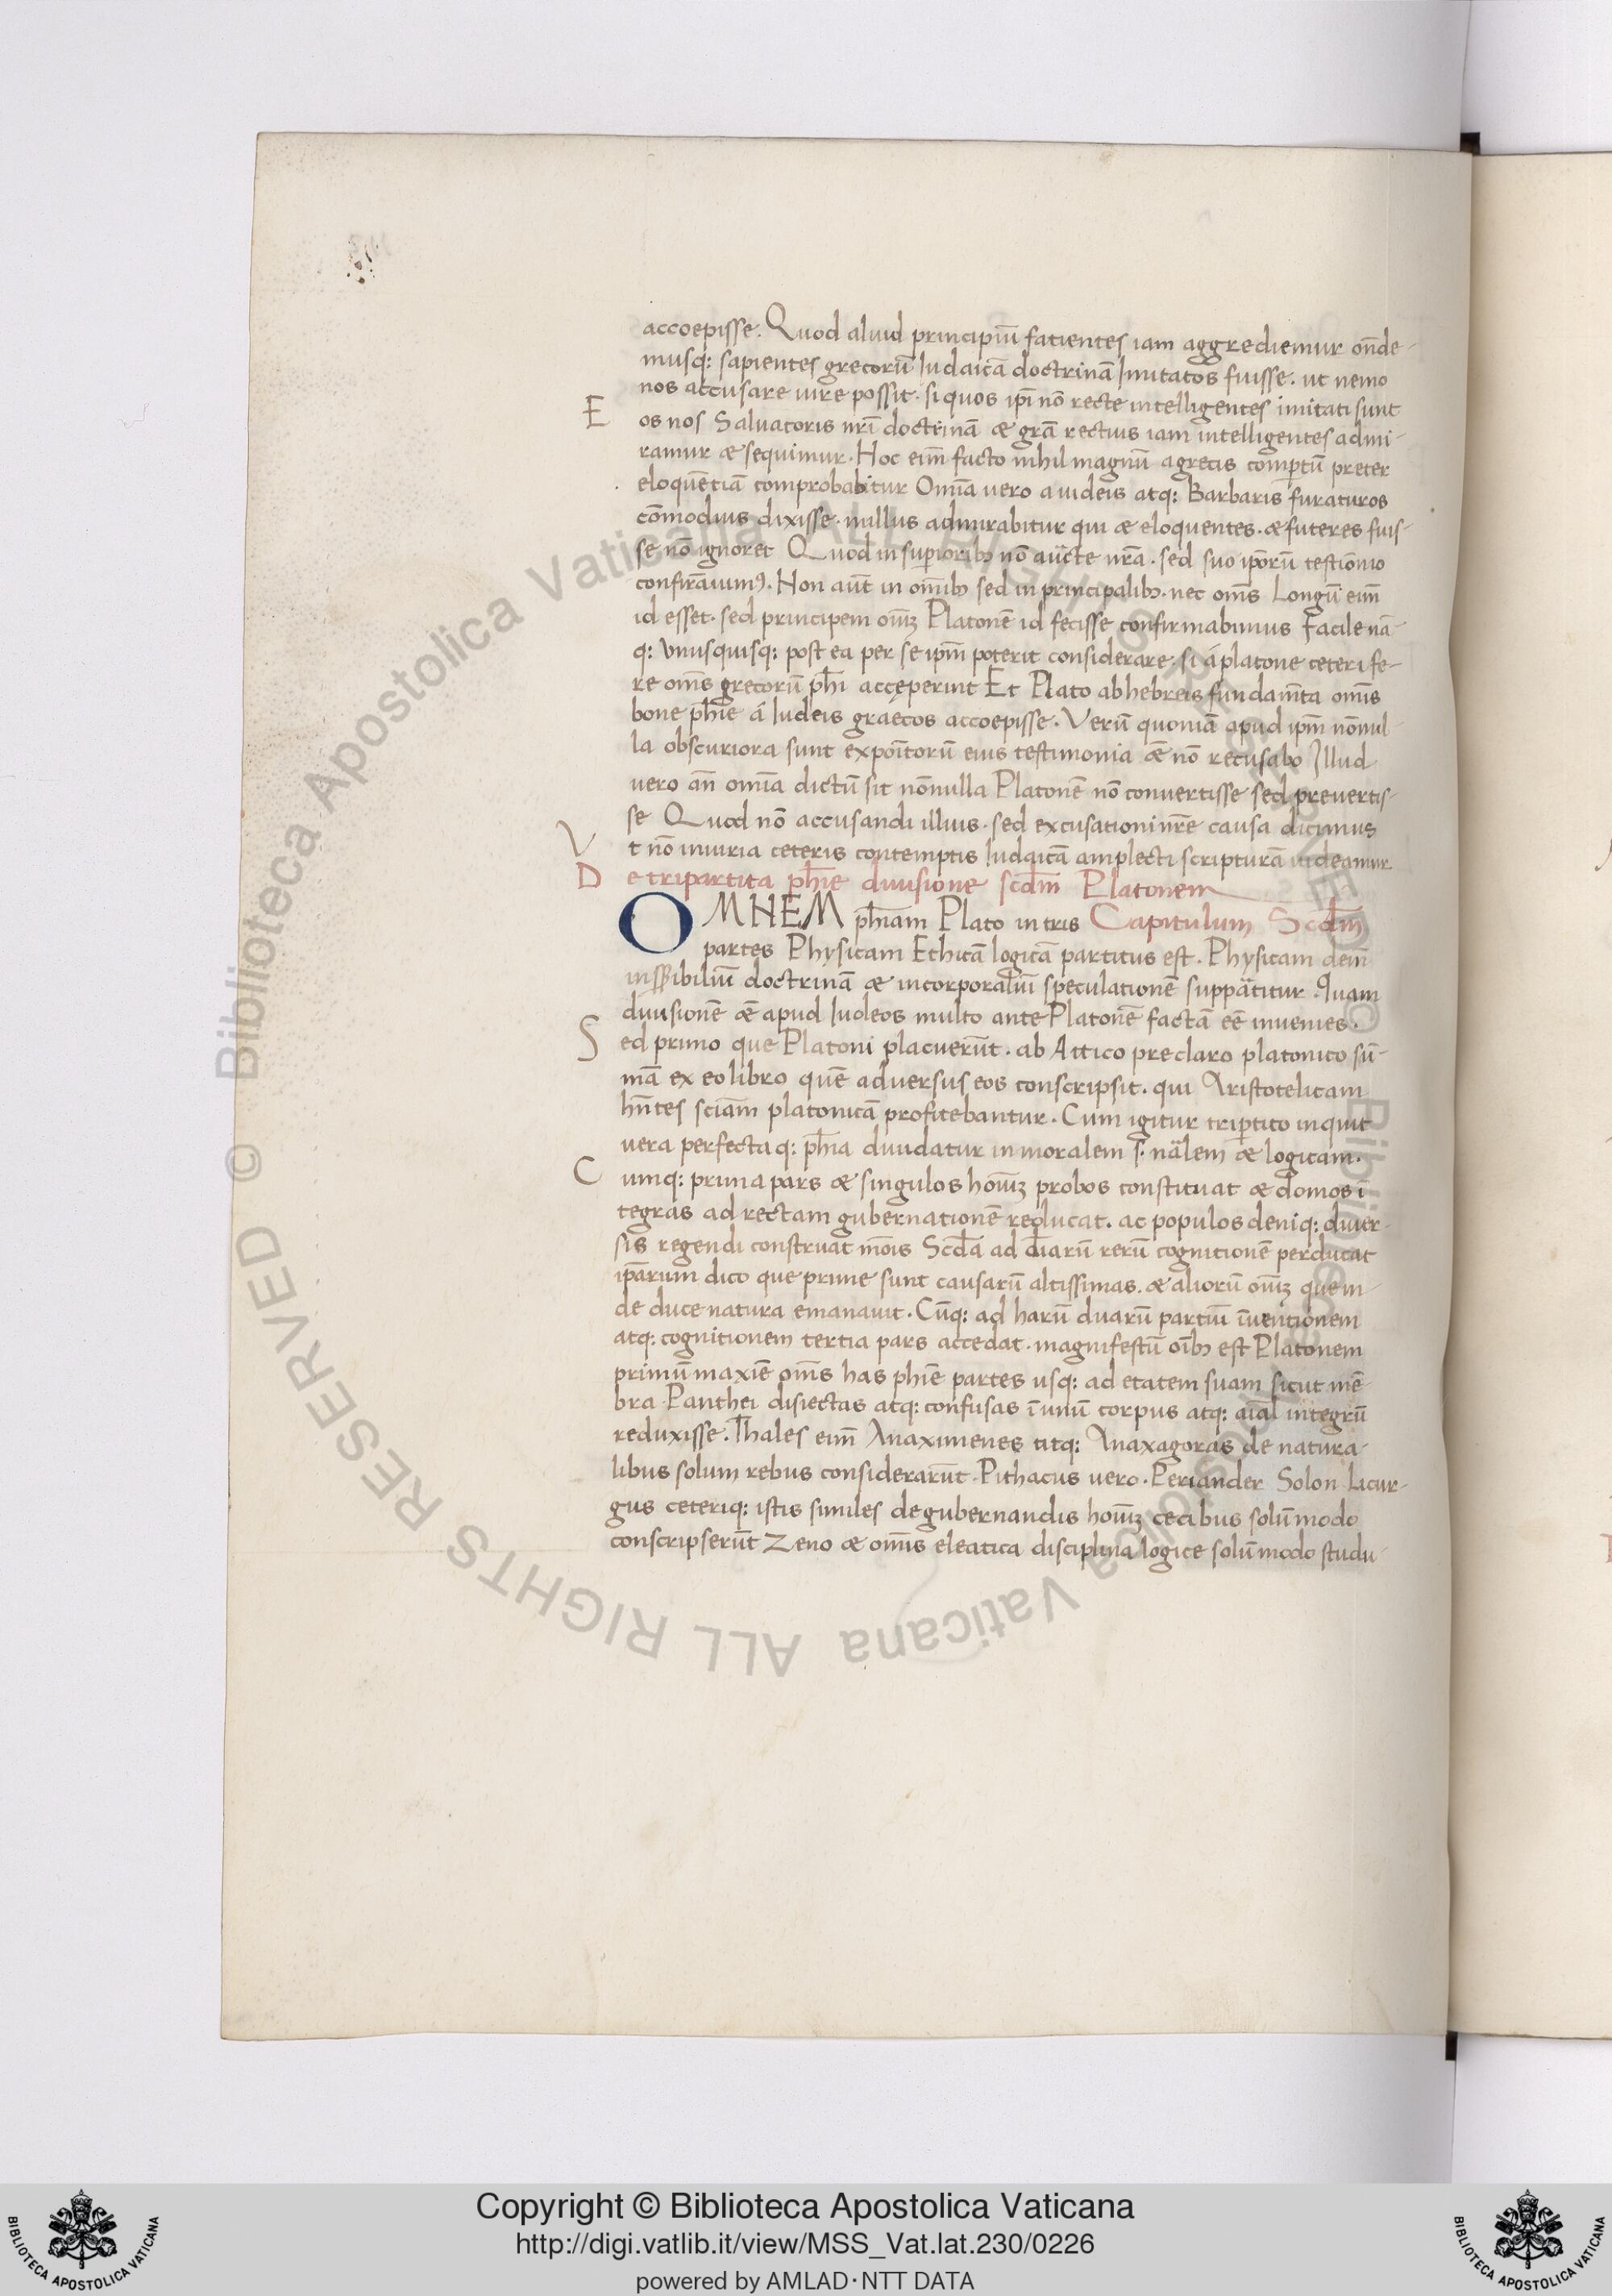 accoepisse. Quod aliud principiū fatientes iam aggrediemur onde-
musq: sapientes grecorū Iudaicā doctrinā Imitatos fuisse. ut nemo
nos accusare iure possit. si quos ip̄i nō recte intelligentes imitati sunt
E os nos Saluatoris nr̄i doctrinā æ grā rectius iam intelligentes admi-
ramur æ sequimur. Hoc eim̄ facto nihil magnū agrecis comp̄tū preter
eloquētiā comprobabitur Omīa uero a iudeis atq: Barbaris furaturos
cōmodius dixisse. nullus admirabitur qui æ eloquentes. æ futeres fuis-
se nō ignoret Quod in superioribꝫ nō aucte nr̄a. sed suo ip̄orū testiōnio
confirāuimꝰ. Non aūt in om̄ibꝫ sed in principalibꝫ. nec om̄s Longū eim̄
id esset. sed principem oīuꝫ Platonē id fecisse confirmabimus Facile nā-
q: Vnusquisq: post ea per se ip̄m poterit considerare. si á platone ceteri fe-
re om̄s grecorū ph̄i acceperint Et Plato ab hebreis fundam̄ta om̄is
bone ph̄ie á Iudeis graecos accoepisse. Verū quoniā apud ip̄m nōnul-
la obscuriora sunt expoītorū eius testimonia ǣ nō recusabo Illud
uero an̄ omīa dictū sit nōnulla Platonē nō conuertisse sed preuertis-
se Quod nō accusandi illius. sed excusationi nr̄e causa dicimus
V t nō iniuria ceteris contemptis Iudaicā amplecti scripturā uideamur
D e tripartita ph̄ie diuisione scd̄m Platonem
OMNEM ph̄iam Plato in tris Capitulum Scd̄m
partes Physicam Ethicā logicā partitus est. Physicam dein̄
insēibiliū doctrinā æ incorporaliū speculationē suppātitur. Quam
diuisionē ǣ apud Iudeos multo ante Platonē factā eē inuenies.
S ed primo que Platoni placuerūt. ab Attico preclaro platonico sū-
mā ex eo libro quē aduersus eos conscripsit. qui Aristotelicam
hn̄tes sciām platonicā profitebantur. Cum igitur trip̄tito inquit
uera perfectaq: ph̄ia diuidatur in moralem s. nālem æ logicam.
C umq: prima pars æ singulos hoīuꝫ probos constituat æ domos ī
tegras ad rectam gubernationē reducat. ac populos deniq: diuer-
sis regendi construat mōis Scd̄a ad diārū rerū cognitionē perducat
ip̄arum dico que prime sunt causarū altissimas. æ aliorū oīuꝫ que in-
de duce natura emanauit. Cūq: ad harū duarū partiū īuentionem
atq: cognitionem tertia pars accedat. magnifestū oībꝫ est Platonem
primū maxīe om̄s has phīe partes usq: ad etatem suam sicut mē
bra Panthei disiectas atq: confusas ī unū corpus atq: aīal integrū
reduxisse. Thales eim̄ Anaximenes atq: Anaxagoras de natura-
libus solum rebus considerarūt. Pithacus uero. Periander Solon Licur-
gus ceteriq: istis similes de gubernandis hoīuꝫ cecibus solūmodo
conscripserūt Zeno æ om̄is eleatica disciplina logice solūmodo studu-
Copyright © Biblioteca Apostolica Vaticana
http://digi.vatlib.it/view/MSS_Vat.lat.230/0226
powered by AMLAD · NTT DATA